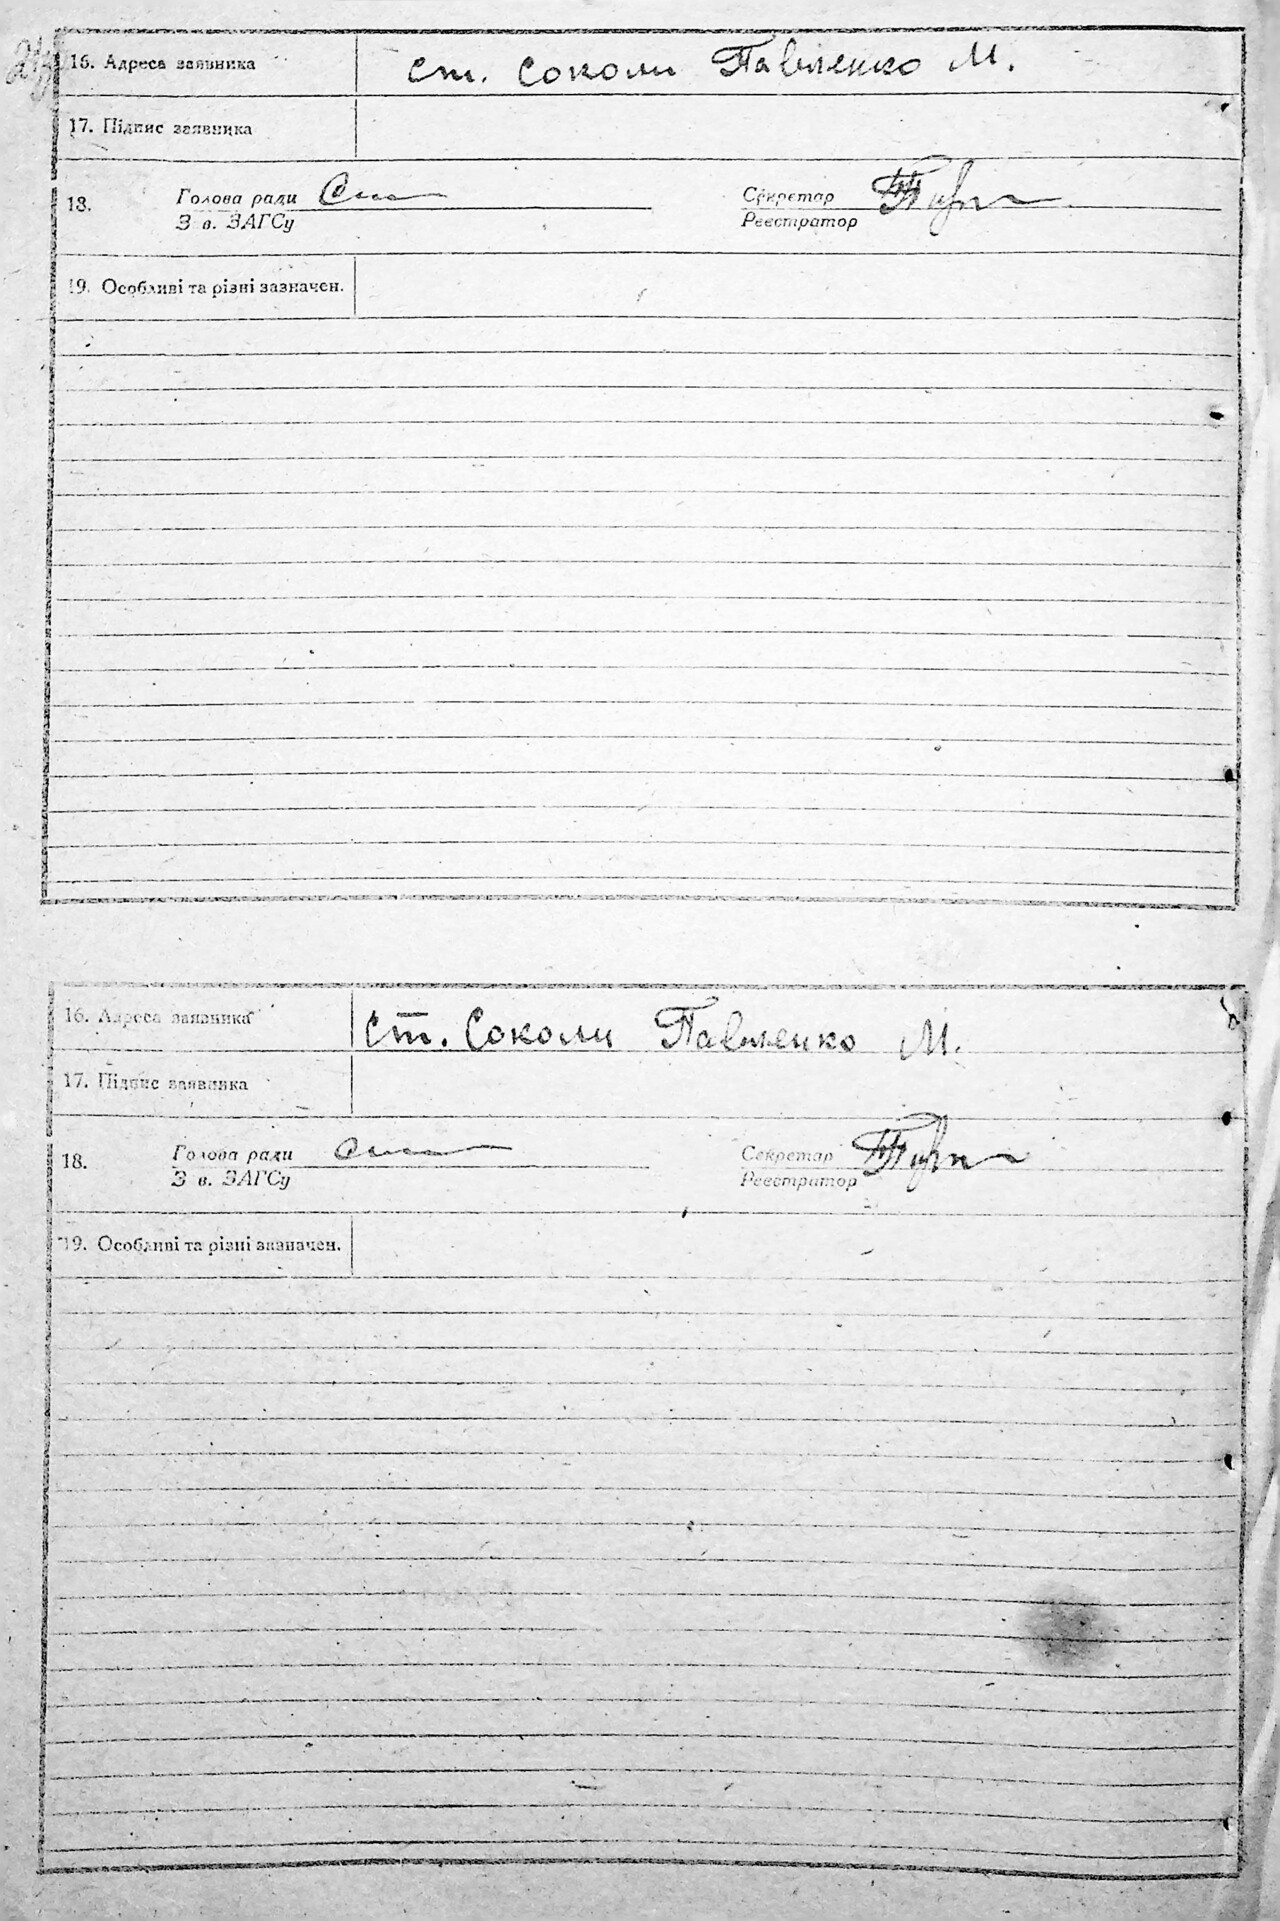 16. Адреса заявника ст. Соколи Павленко М.
17. Підпис заявника
18. Голова ради Секретар
З в. ЗАГСу Реєстратор
19. Особливі та різні зазначен.
16. Адреса заявника ст. Соколи Павленко М.
17. Підпис заявника
18. Голова ради Секретар
З в. ЗАГСу Реєстратор
19. Особливі та різні зазначен.